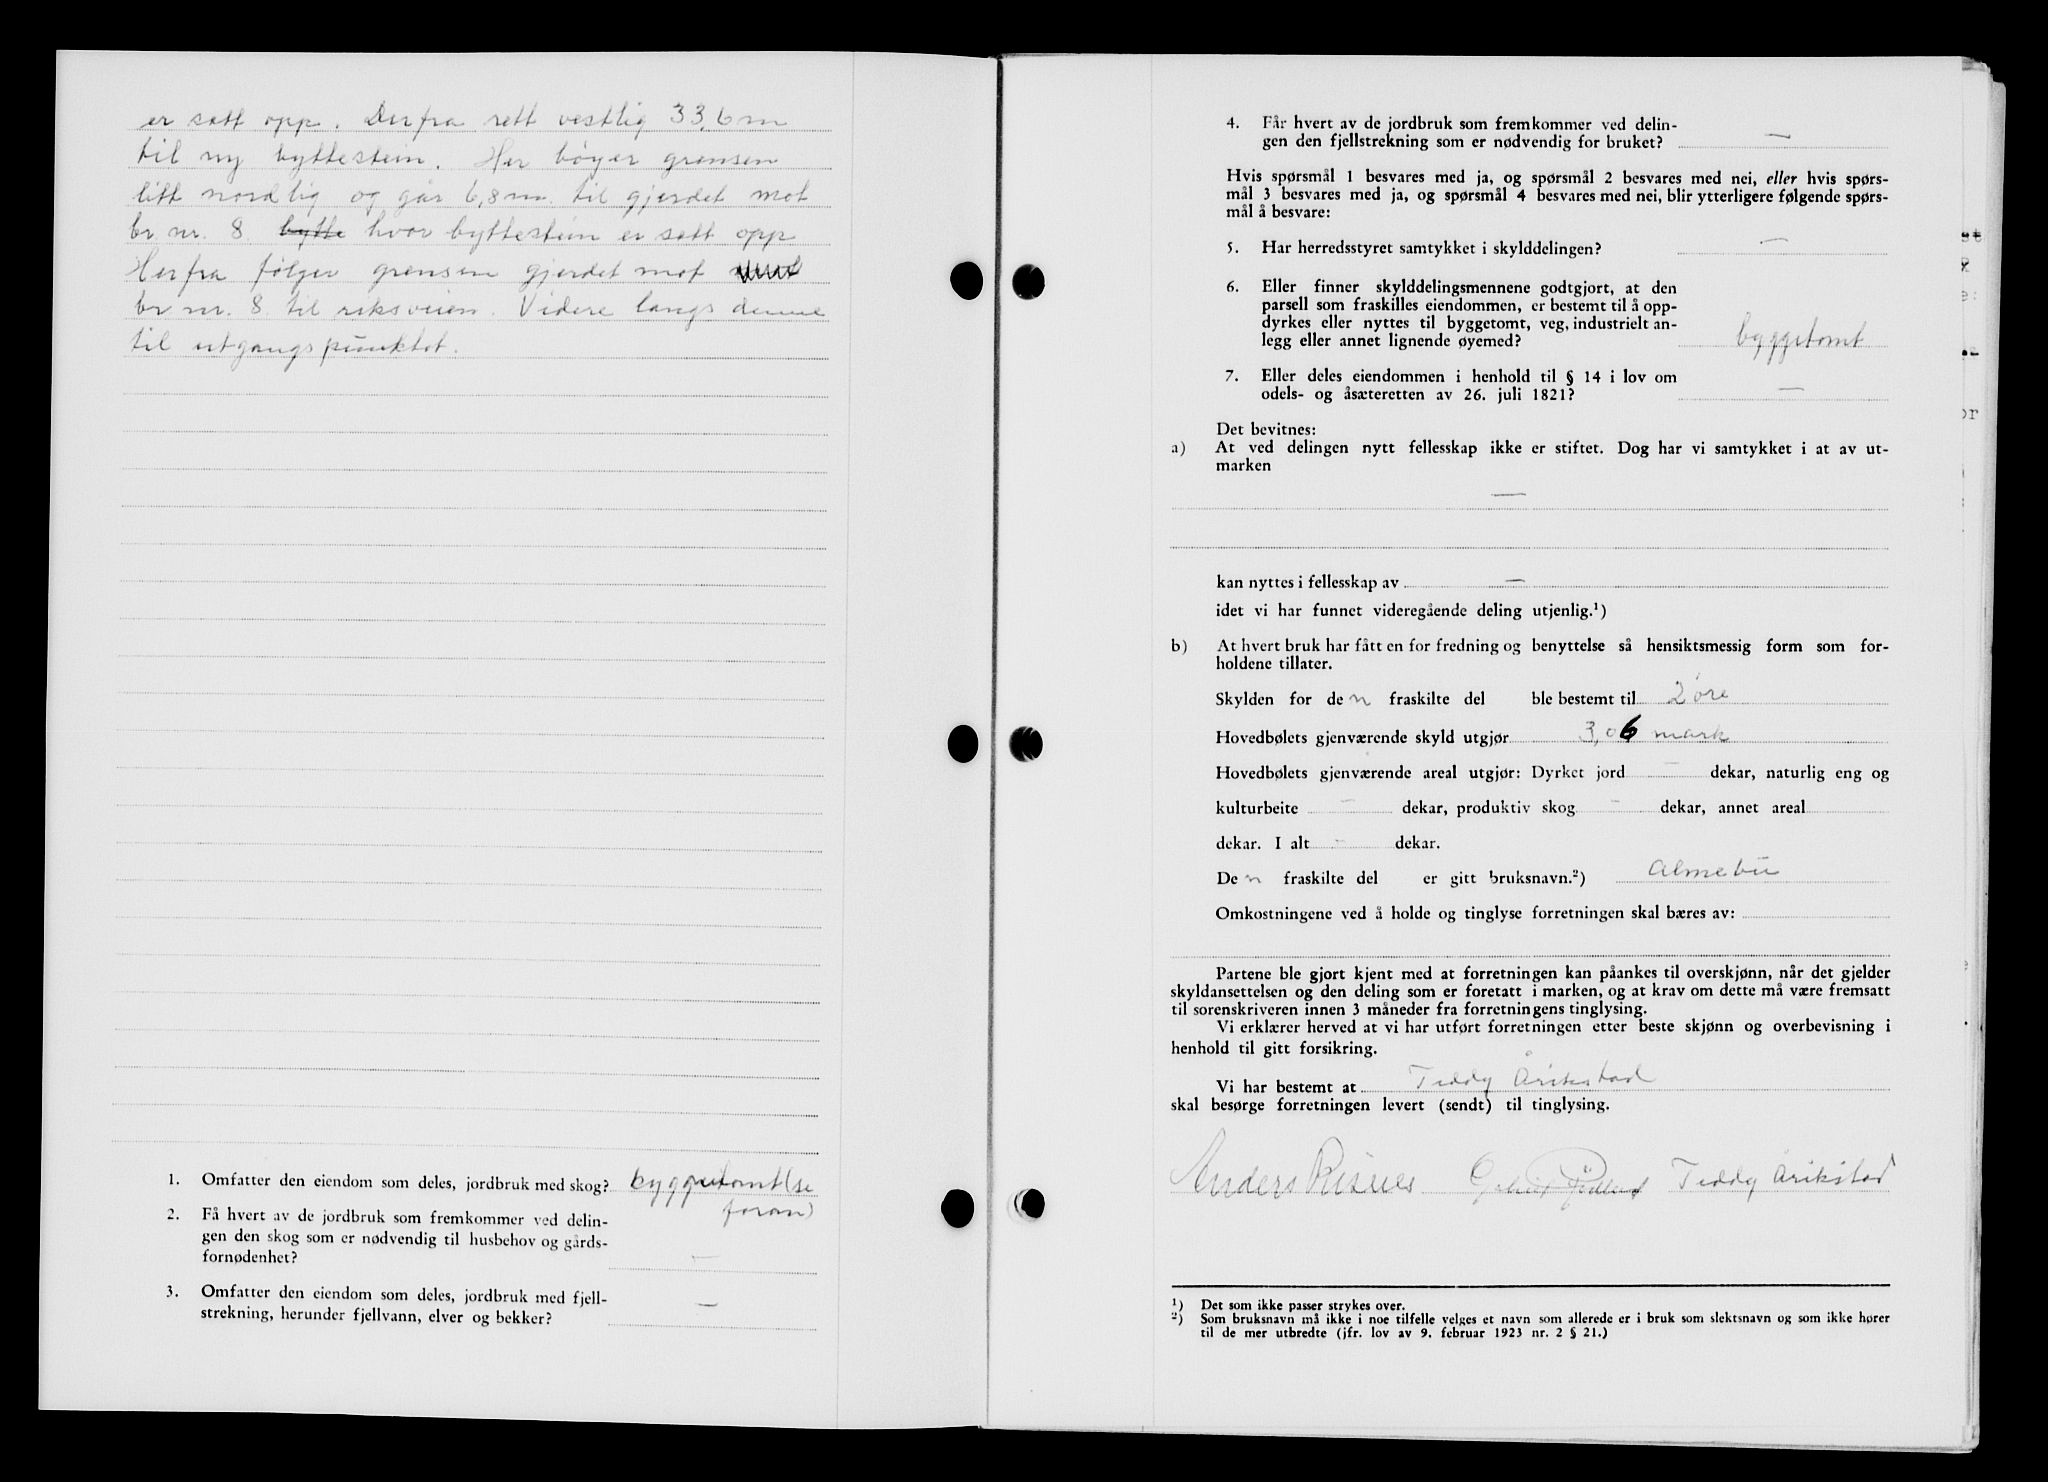 er satt opp. Derfra rett vestlig 33,6 m
til ny byttestein. Her bøyer grensen
litt nordlig og går 6,8 m. til gjerdet mot
br. nr. 8 bytte hvor byttestein er satt opp
Herfra følger grensen gjerdet mot
br. nr. 8 til riksveien. Videre langs denne
til utgangspunktet.
1. Omfatter den eiendom som deles, jordbruk med skog? byggetomt (se
foran)
2. Få hvert av de jordbruk som fremkommer ved delin-
gen den skog som er nødvendig til husbehov og gårds-
fornødenhet? —
3. Omfatter den eiendom som deles, jordbruk med fjell-
strekning, herunder fjellvann, elver og bekker? —
4. Får hvert av de jordbruk som fremkommer ved delin-
gen den fjellstrekning som er nødvendig for bruket? —
Hvis spørsmål 1 besvares med ja, og spørsmål 2 besvares med nei, eller hvis spørs-
mål 3 besvares med ja, og spørsmål 4 besvares med nei, blir ytterligere følgende spørs-
mål å besvare:
5. Har herredsstyret samtykket i skylddelingen? —
6. Eller finner skylddelingsmennene godtgjort, at den
parsell som fraskilles eiendommen, er bestemt til å opp-
dyrkes eller nyttes til byggetomt, veg, industrielt an-
legg eller annet lignende øyemed? byggetomt
7. Eller deles eiendommen i henhold til § 14 i lov om
odels- og åsæteretten av 26. juli 1821? —
Det bevitnes:
a) At ved delingen nytt fellesskap ikke er stiftet. Dog har vi samtykket i at av ut-
marken
—
kan nyttes i fellesskap av —
idet vi har funnet videregående deling utjenlig.¹)
b) At hvert bruk har fått en for fredning og benyttelse så hensiktsmessig form som for-
holdene tillater.
Skylden for den fraskilte del ble bestemt til 2 øre
Hovedbølets gjenværende skyld utgjør 3,06 mark
Hovedbølets gjenværende areal utgjør: Dyrket jord — dekar, naturlig eng og
kulturbeite — dekar, produktiv skog — dekar, annet areal
dekar. I alt — dekar.
Den fraskilte del er gitt bruksnavn.²) Almebu
Omkostningene ved å holde og tinglyse forretningen skal bæres av:
Partene ble gjort kjent med at forretningen kan påankes til overskjønn, når det gjelder
skyldansettelsen og den deling som er foretatt i marken, og at krav om dette må være fremsatt
til sorenskriveren innen 3 måneder fra forretningens tinglysing.
Vi erklærer herved at vi har utført forretningen etter beste skjønn og overbevisning i
henhold til gitt forsikring.
Vi har bestemt at Teddy Årikstad
skal besørge forretningen levert (sendt) til tinglysing.
Anders Risnes Teddy Årikstad
¹) Det som ikke passer strykes over.
²) Som bruksnavn må ikke i noe tilfelle velges et navn som allerede er i bruk som slektsnavn og som ikke hører
til de mer utbredte (jfr. lov av 9. februar 1923 nr. 2 § 21.)